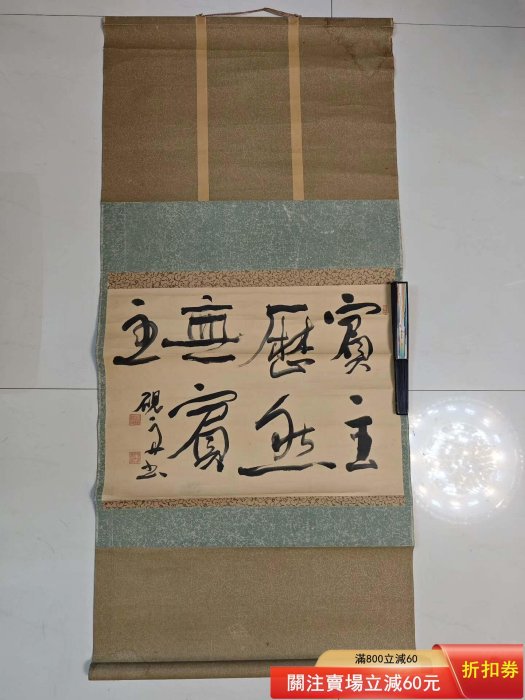 賓主
歷然
無賓
主
硯
滿800立減60
關注賣場立減60元
折扣券